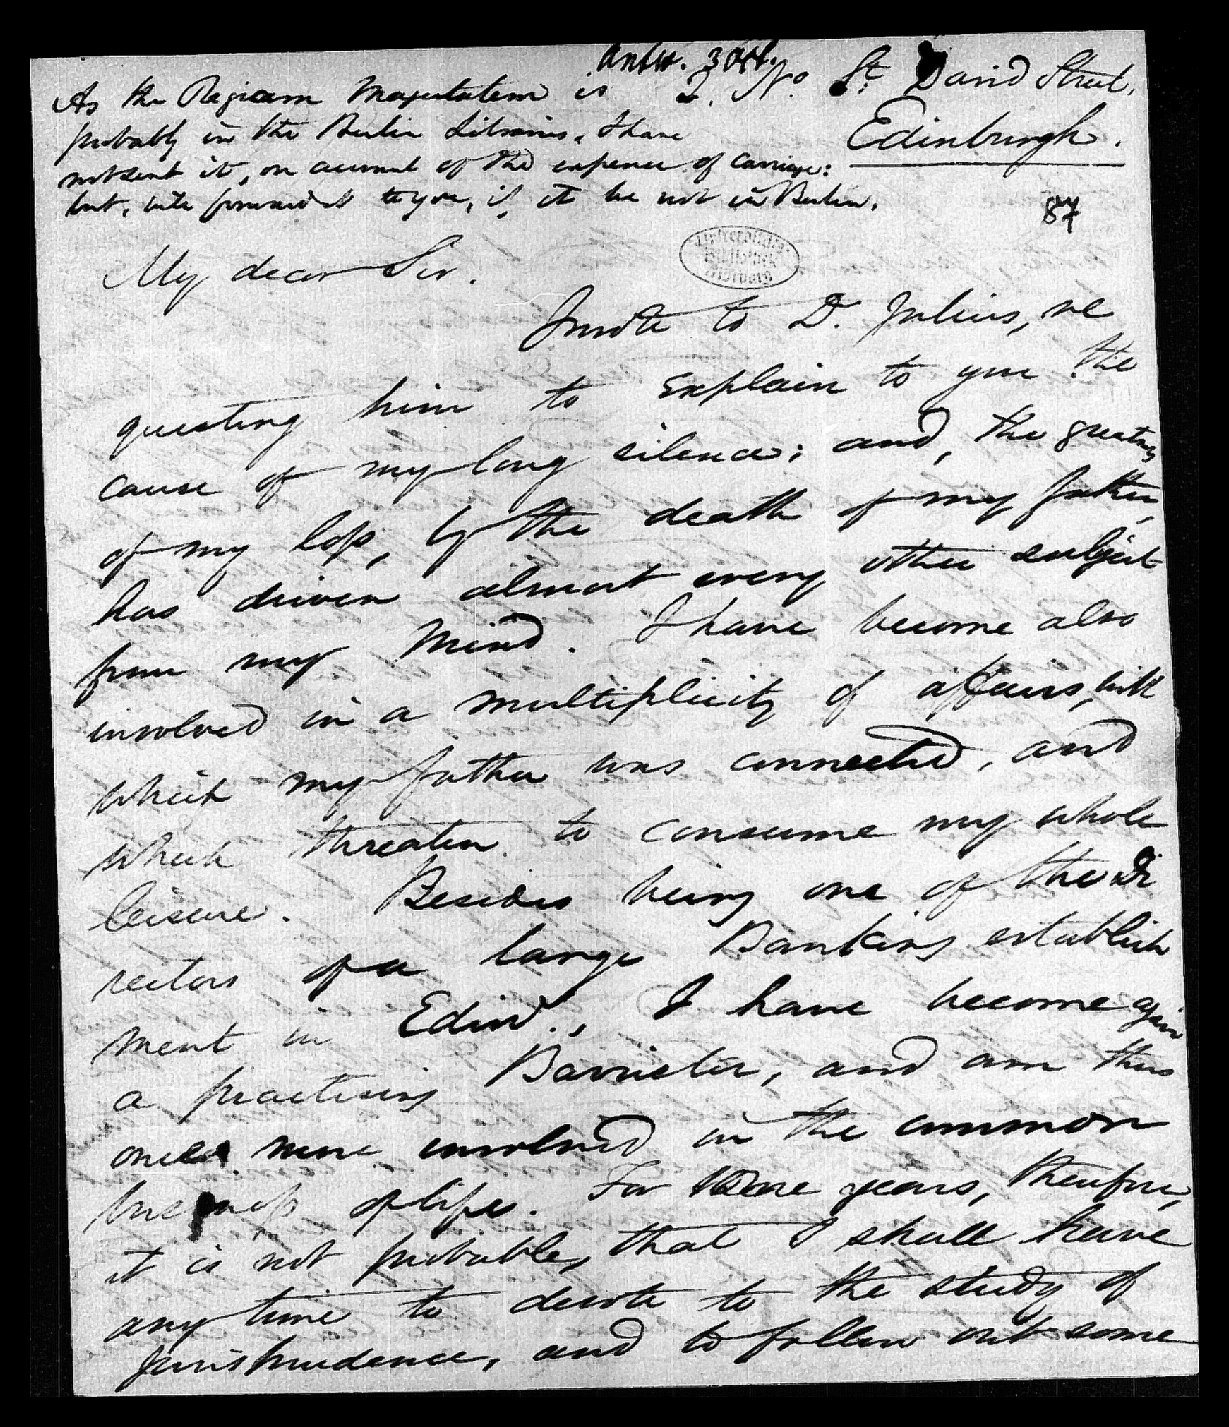 antw. 3 Oct.
2. No. St. David Street,
Edinburgh.
As the Regiam Majestatem is
probably in the Berlin Libraries, I have
not sent it, on account of the expence of carriage:
but, will forward it to you, if it be not in Berlin.
87
Universitäts-
Bibliothek
Marburg
My dear Sir.
I wrote to Dr. Julius, re
questing him to explain to you the
cause of my long silence; and, the greatness
of my loss, by the death of my father,
has driven almost every other subject
from my mind. I have become also
involved in a multiplicity of affairs, with
which my father was connected, and
which threaten to consume my whole
leisure. Besides being one of the Di
rectors of a large Banking establish
ment in Edinr., I have become again
a practising Barrister, and am thus
once more involved in the common
business of life. For some years, therefore,
it is not probable, that I shall have
any time to devote to the study of
Jurisprudence, and to follow out some